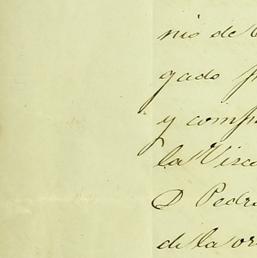 nio de
gado
y comp
la Visc
D Pedr
de la or